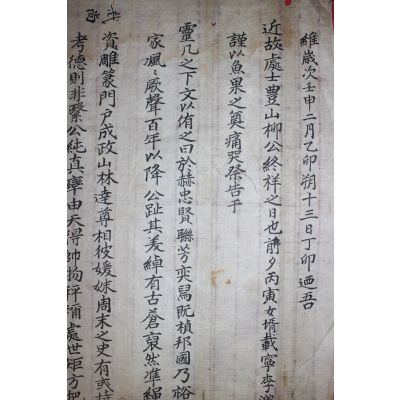 維歲次壬申二月乙卯朔十三日丁卯廼吾
近故處士豊山柳公終祥之日也前夕丙寅女壻載寧李
謹以魚果之奠痛哭祭告于
靈几之下文以侑之曰於赫忠賢聯芳奕舃旣楨邦國乃裕
家風厥聲百年以降公趾其美綽有古蒼裒然準繩
資雕篆門戶成政山林達尊相彼媛妹周末之史有
考德則非繫公純眞率由天得帥物秤彌處世矩方